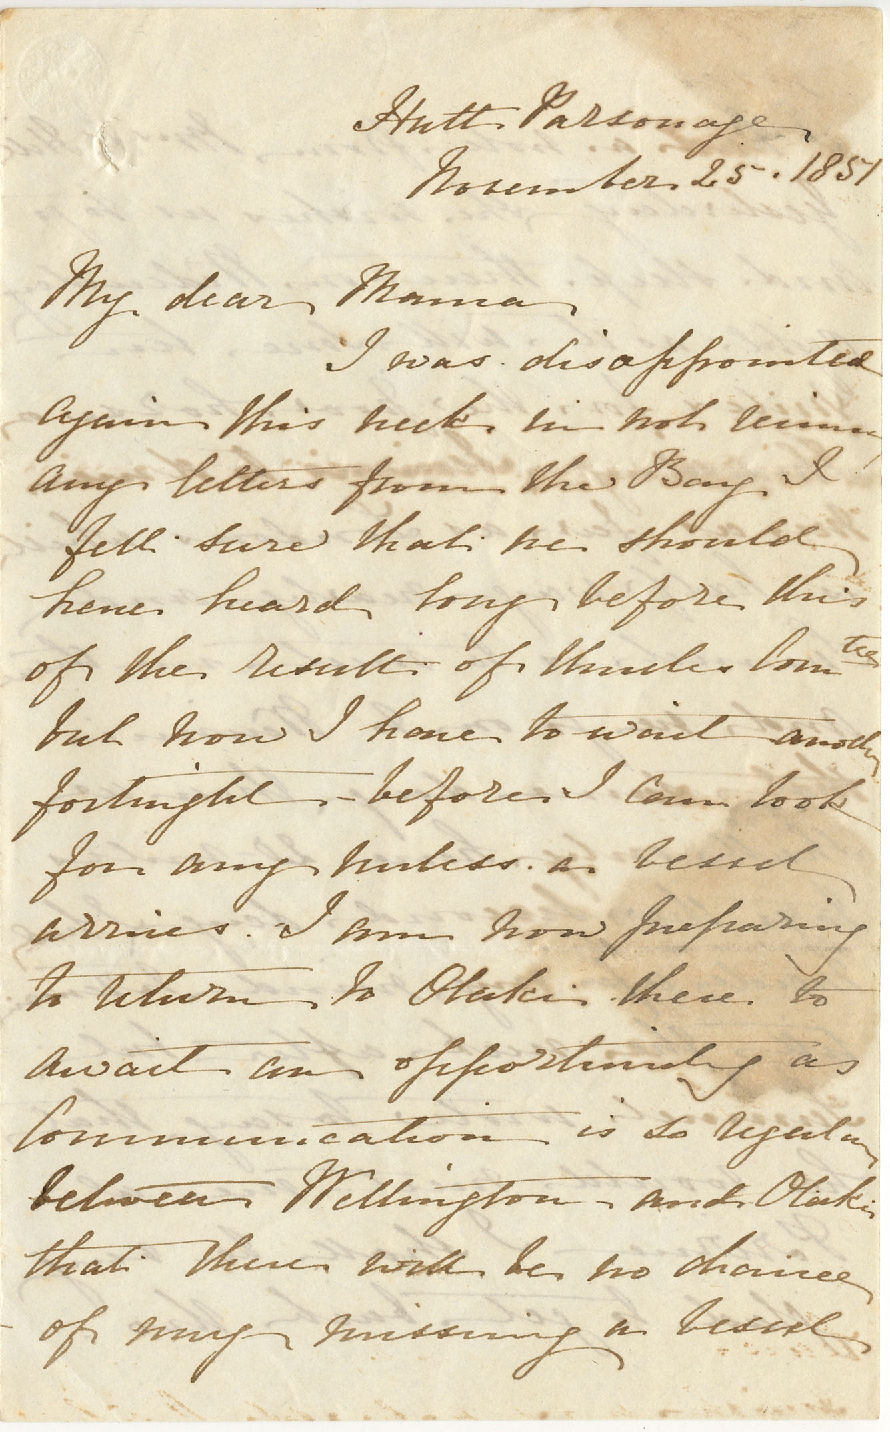 Hutt Parsonage
November 25. 1851
My dear Mama
I was disappointed
again this week in not
any letters from the Bay I
felt sure that we should
have heard long before this
of the result of the Com tee
but now I have to wait another
fortnight - before I can look
for any unless a vessel
arrives. I am now preparing
to return to Otaki there to
await an opportunity as
Communication is so regular
between Wellington and Otaki
that there will be no chance
of my missing a vessel